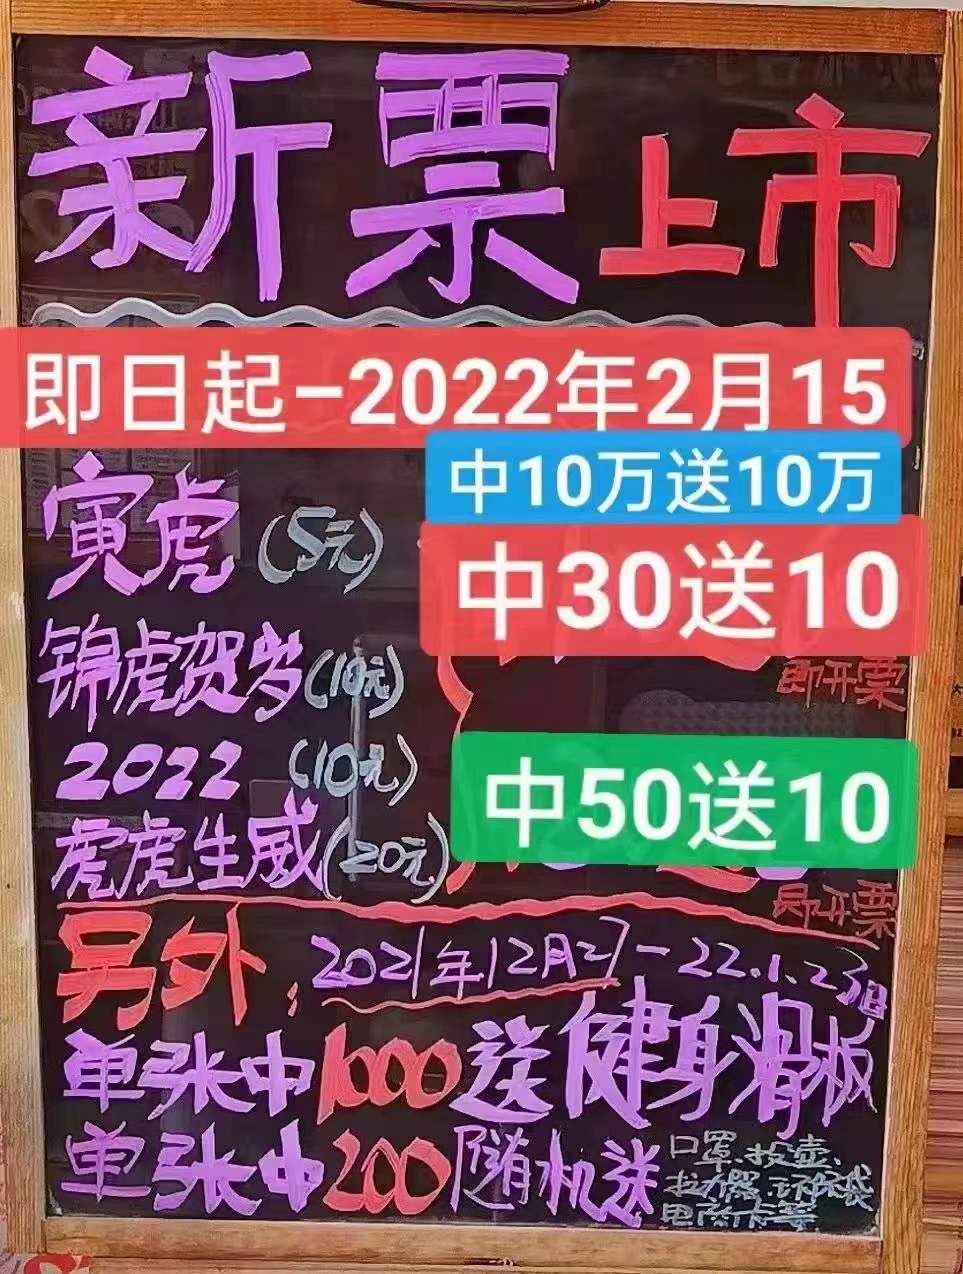 新票上市
即日起-2022年2月15
中10万送10万
寅虎(5元)
中30送10
锦虎贺岁(10元)
即开票
2022(10元)
中50送10
虎虎生威(20元)
即开票
另外:2021年12月27-22.1.23日
单张中1000送健身滑板
单张中200随机送口罩、投壶、
拉力器、环保袋
电话卡等